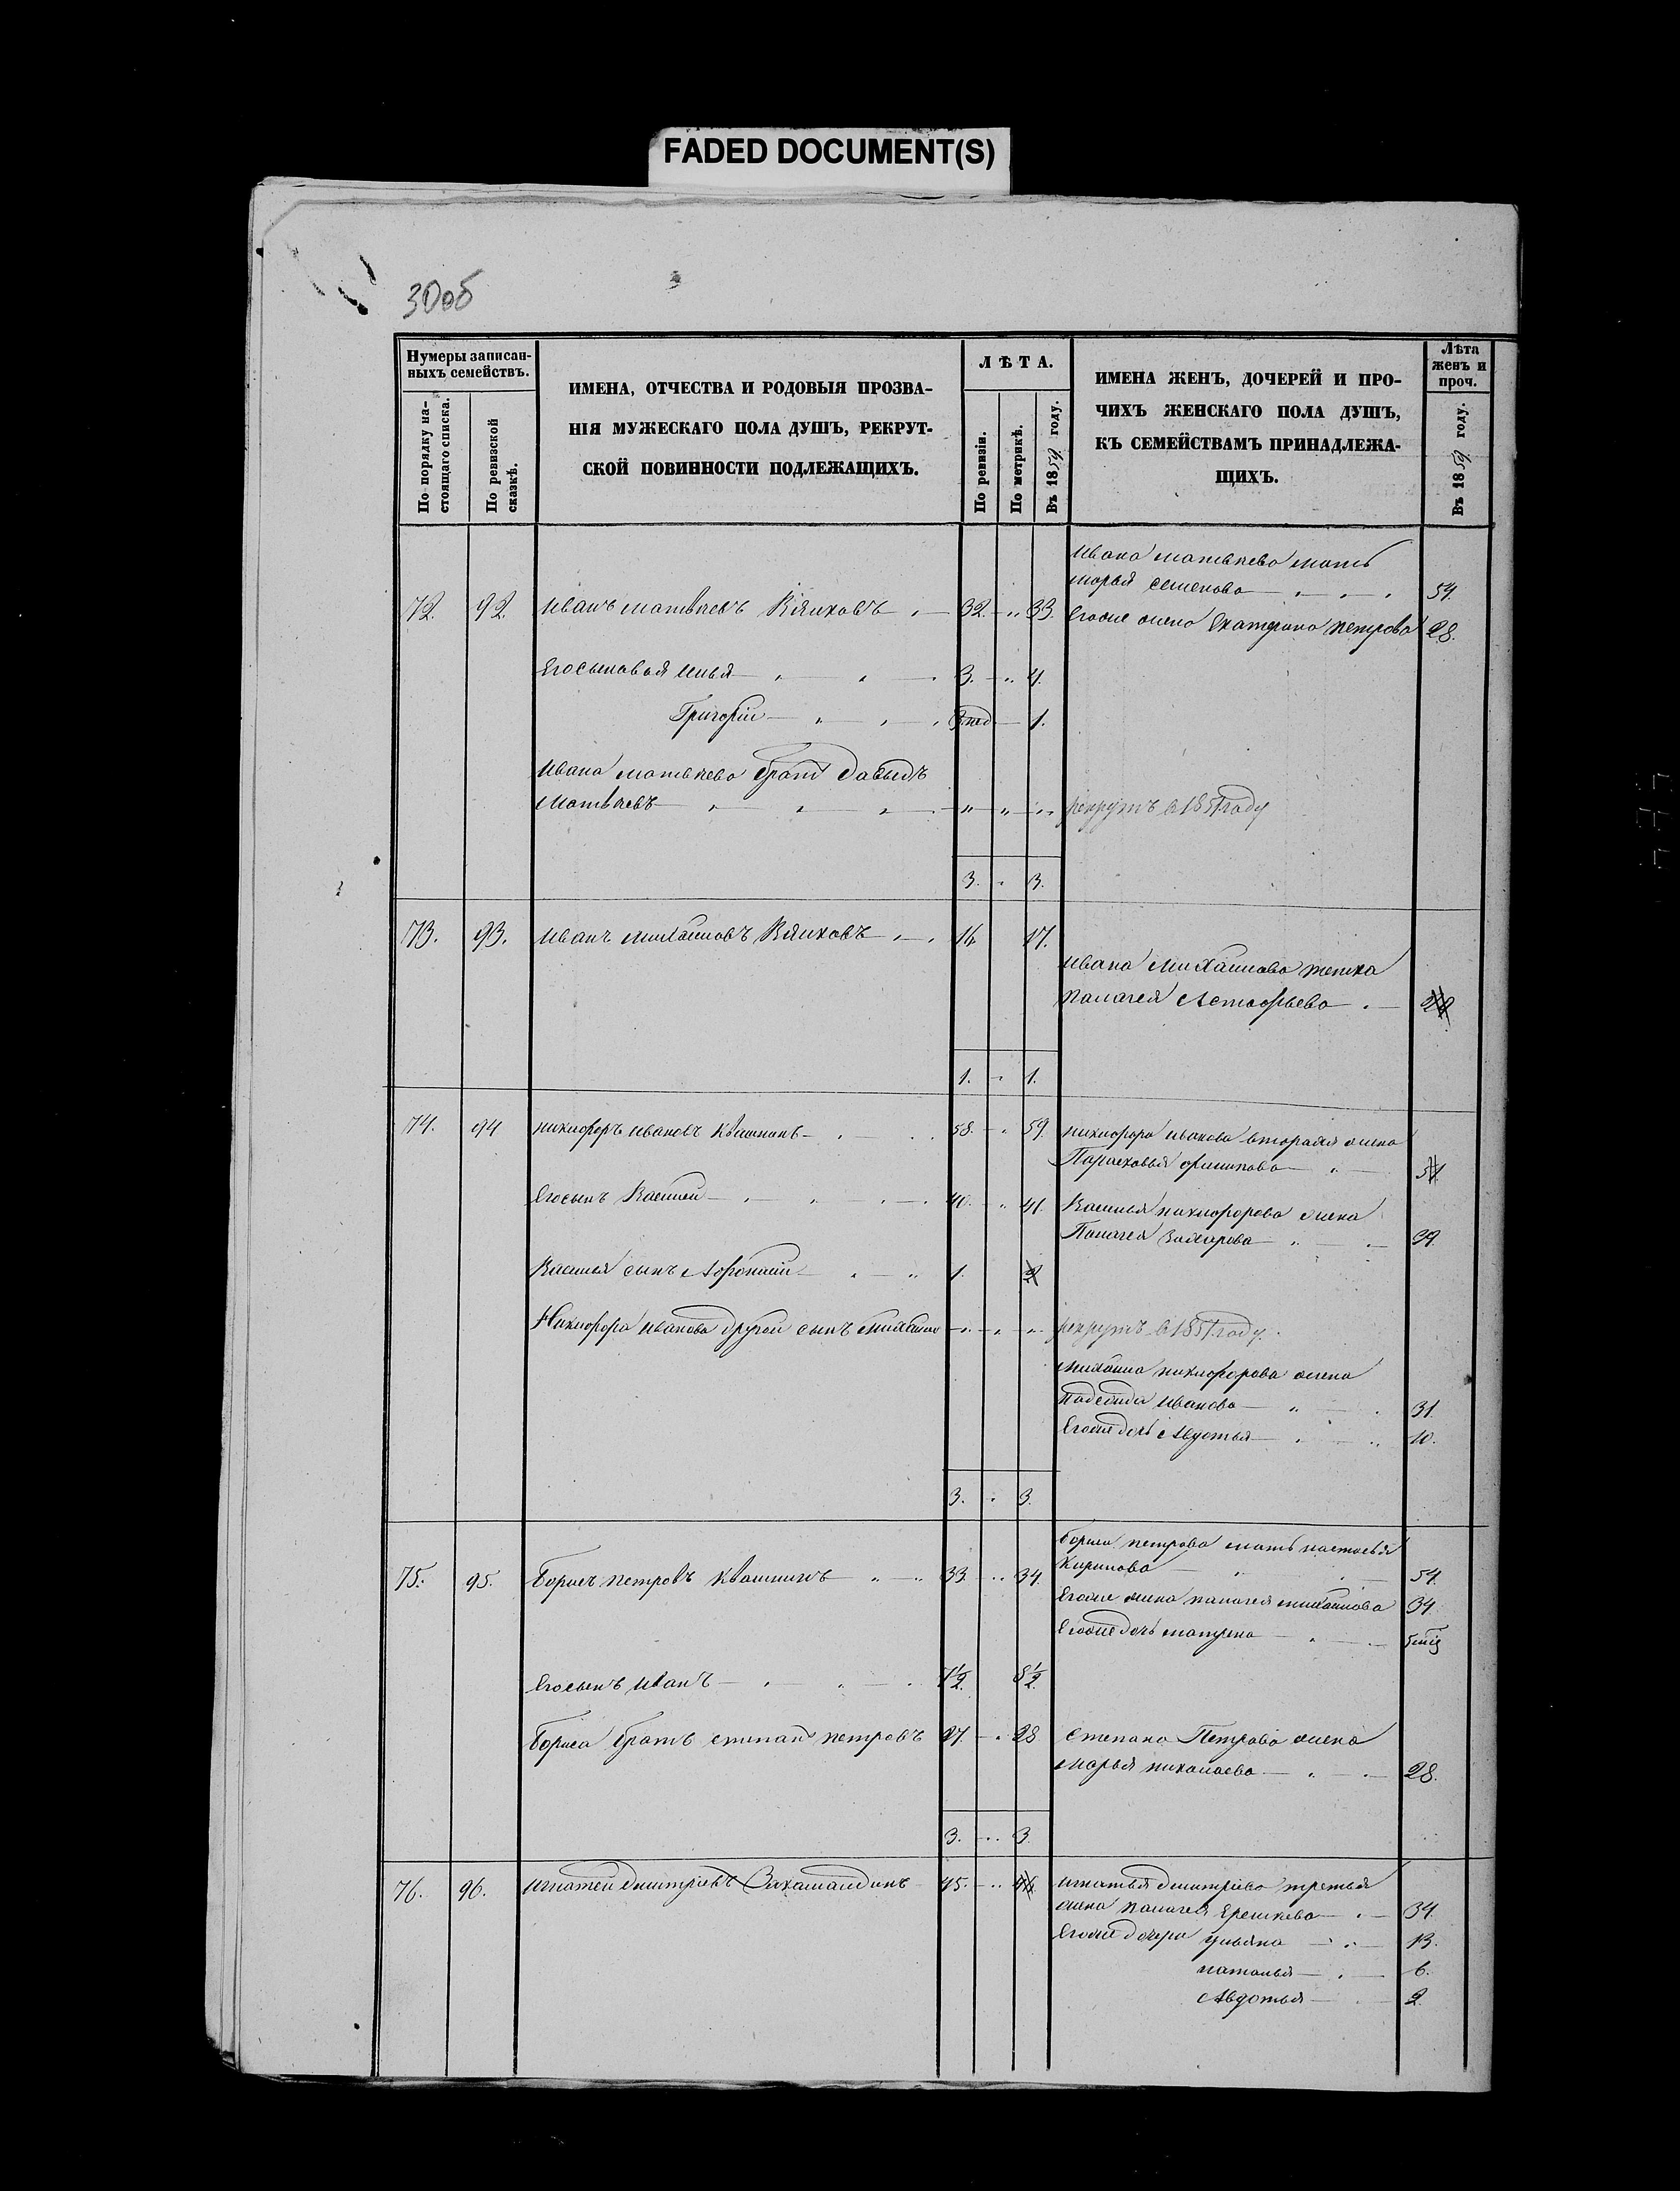 FADED DOCUMENT(S)
30об
Нумеры записан-
ныхъ семействъ.
По порядку на-
стоящаго списка.
По ревизской
сказкѣ.
ИМЕНА, ОТЧЕСТВА И РОДОВЫЯ ПРОЗВА-
НІЯ МУЖЕСКАГО ПОЛА ДУШЪ, РЕКРУТ-
СКОЙ ПОВИННОСТИ ПОДЛЕЖАЩИХЪ.
ЛѢТА.
По ревизіи.
По метрикѣ.
Въ 1859 году.
ИМЕНА ЖЕНЪ, ДОЧЕРЕЙ И ПРО-
ЧИХЪ ЖЕНСКАГО ПОЛА ДУШЪ,
КЪ СЕМЕЙСТВАМЪ ПРИНАДЛЕЖА-
ЩИХЪ.
Лѣта
женъ и
проч.
Въ 1859 году.
Ивана матвѣева мать
марья семенова 54.
72. 92. Иванъ матвѣевъ 32. 33. Егоже жена Екатерина петрова 28.
Его сыновья Илья 3. 4.
Григорій 1.
Ивана матвѣева братъ давыдъ
матвѣевъ рекрутъ в 1857 году
3. 3.
73. 93. Иванъ михайловъ 16 17.
Ивана михайлова тетка
палагея Астафьева
1. 1.
74. 94 никифоръ ивановъ Квашнинъ 58. 59. никифора иванова вторая жена
Парасковья филипова
Его сынъ Василей 40. 41. Василья никифорова жена
Палагея 39.
Василья сынъ Афонасий 1.
Никифора иванова другой сынъ михайла рекрутъ в 1857 году.
михайла никифорова жена
надежда иванова 31.
Егоже дочь Авдотья 10.
3. 3.
Бориса петрова мать настасья
Кирилова 54.
75. 95. Борисъ петровъ Квашнинъ 33. 34. Егоже жена палагея михайлова 34
Егоже дочь матрена
Его сынъ иванъ 7½ 8½
Бориса братъ степанъ петровъ 27. 28. Степана Петрова жена
марья николаева 28.
3. 3.
76. 96. игнатей дмитріевъ 45. игнатья дмитріева третья
жена палагея 34.
Егоже дочери ульяна 13.
наталья 6.
Авдотья 2.